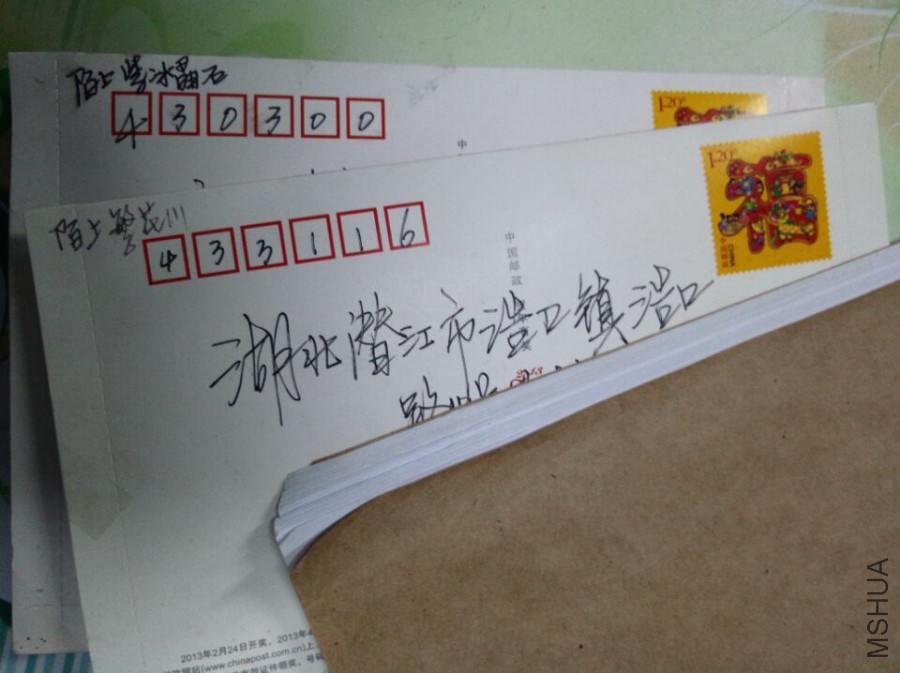 陌上紫冰晶石
430300
1.20元
陌上繁花川
433116
1.20元
中国邮政
湖北潜江市浩口镇浩口
2013年2月24日开奖,2013年4
(www.chinapost.com.cn)上
MSHUA